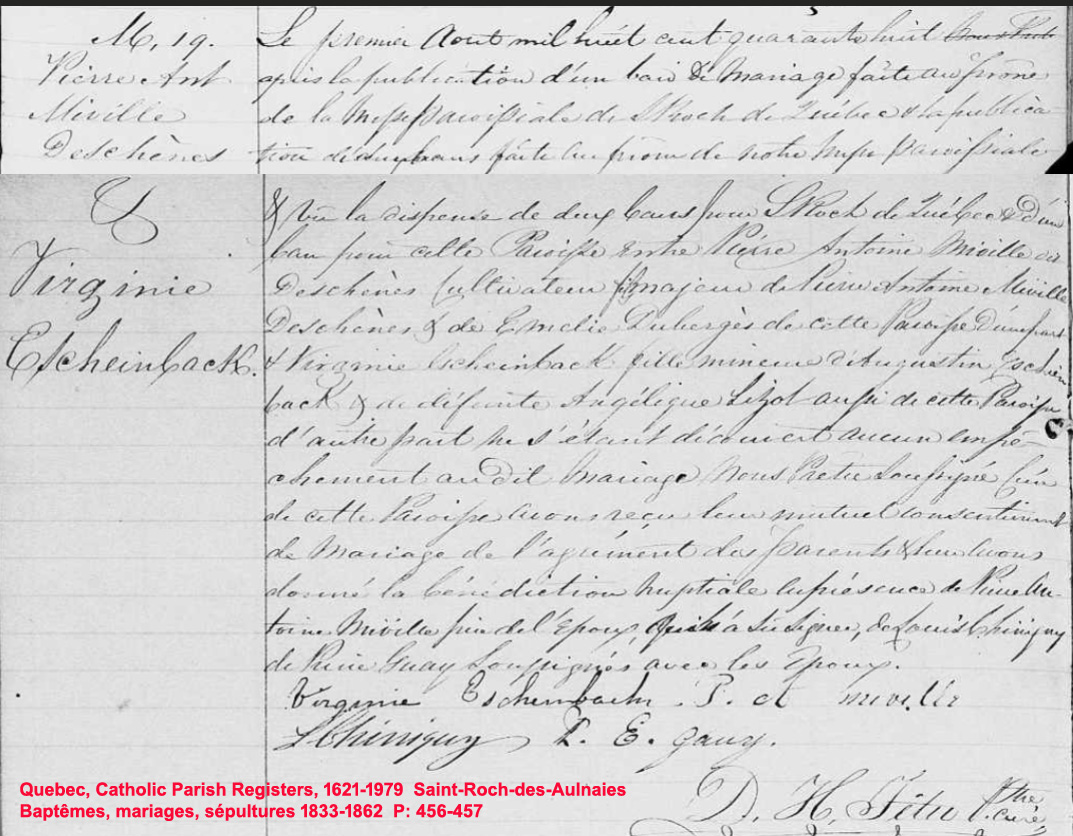 M, 19.
Pierre Ant
Miville
Deschènes
&
Virginie
Escheinback.
Le premier Aout mil huit cent quarante huit
après la publication d'un ban de Mariage faite au prône
de la Messe paroissiale de St Roch de Québec & la publica
tion de deux bans faite au prône de notre Messe paroissiale
& vu la dispense de deux bans pour St Roch de Québec & d'un
ban pour cette Paroisse entre Pierre Antoine Miville dit
Deschènes Cultivateur fils majeur de Pierre Antoine Miville
Deschènes & de Emelie Dubergès de cette Paroisse d'une part
& Virginie Escheinback fille mineure d'Augustin Eschein
back & de défunte Angélique Lizot aussi de cette Paroisse
d'autre part ne s'étant découvert aucun empê-
chement au dit Mariage Nous Prêtre Soussigné Curé
de cette Paroisse avons reçu leur mutuel consentement
de Mariage de l'agrément des parents & leur avons
donné la bénédiction nuptiale en présence de Pierre An-
toine Miville père de l'Epoux, qui n'a su signer, de Louis Chiniquy
de Pierre Guay Soussignés avec les Epoux.
Virginie Eschenbach . P. at miville
LChiniquy P. E. Gauy.
D. H. Têtu Ptre
curé
Quebec, Catholic Parish Registers, 1621-1979 Saint-Roch-des-Aulnaies
Baptêmes, mariages, sépultures 1833-1862 P: 456-457